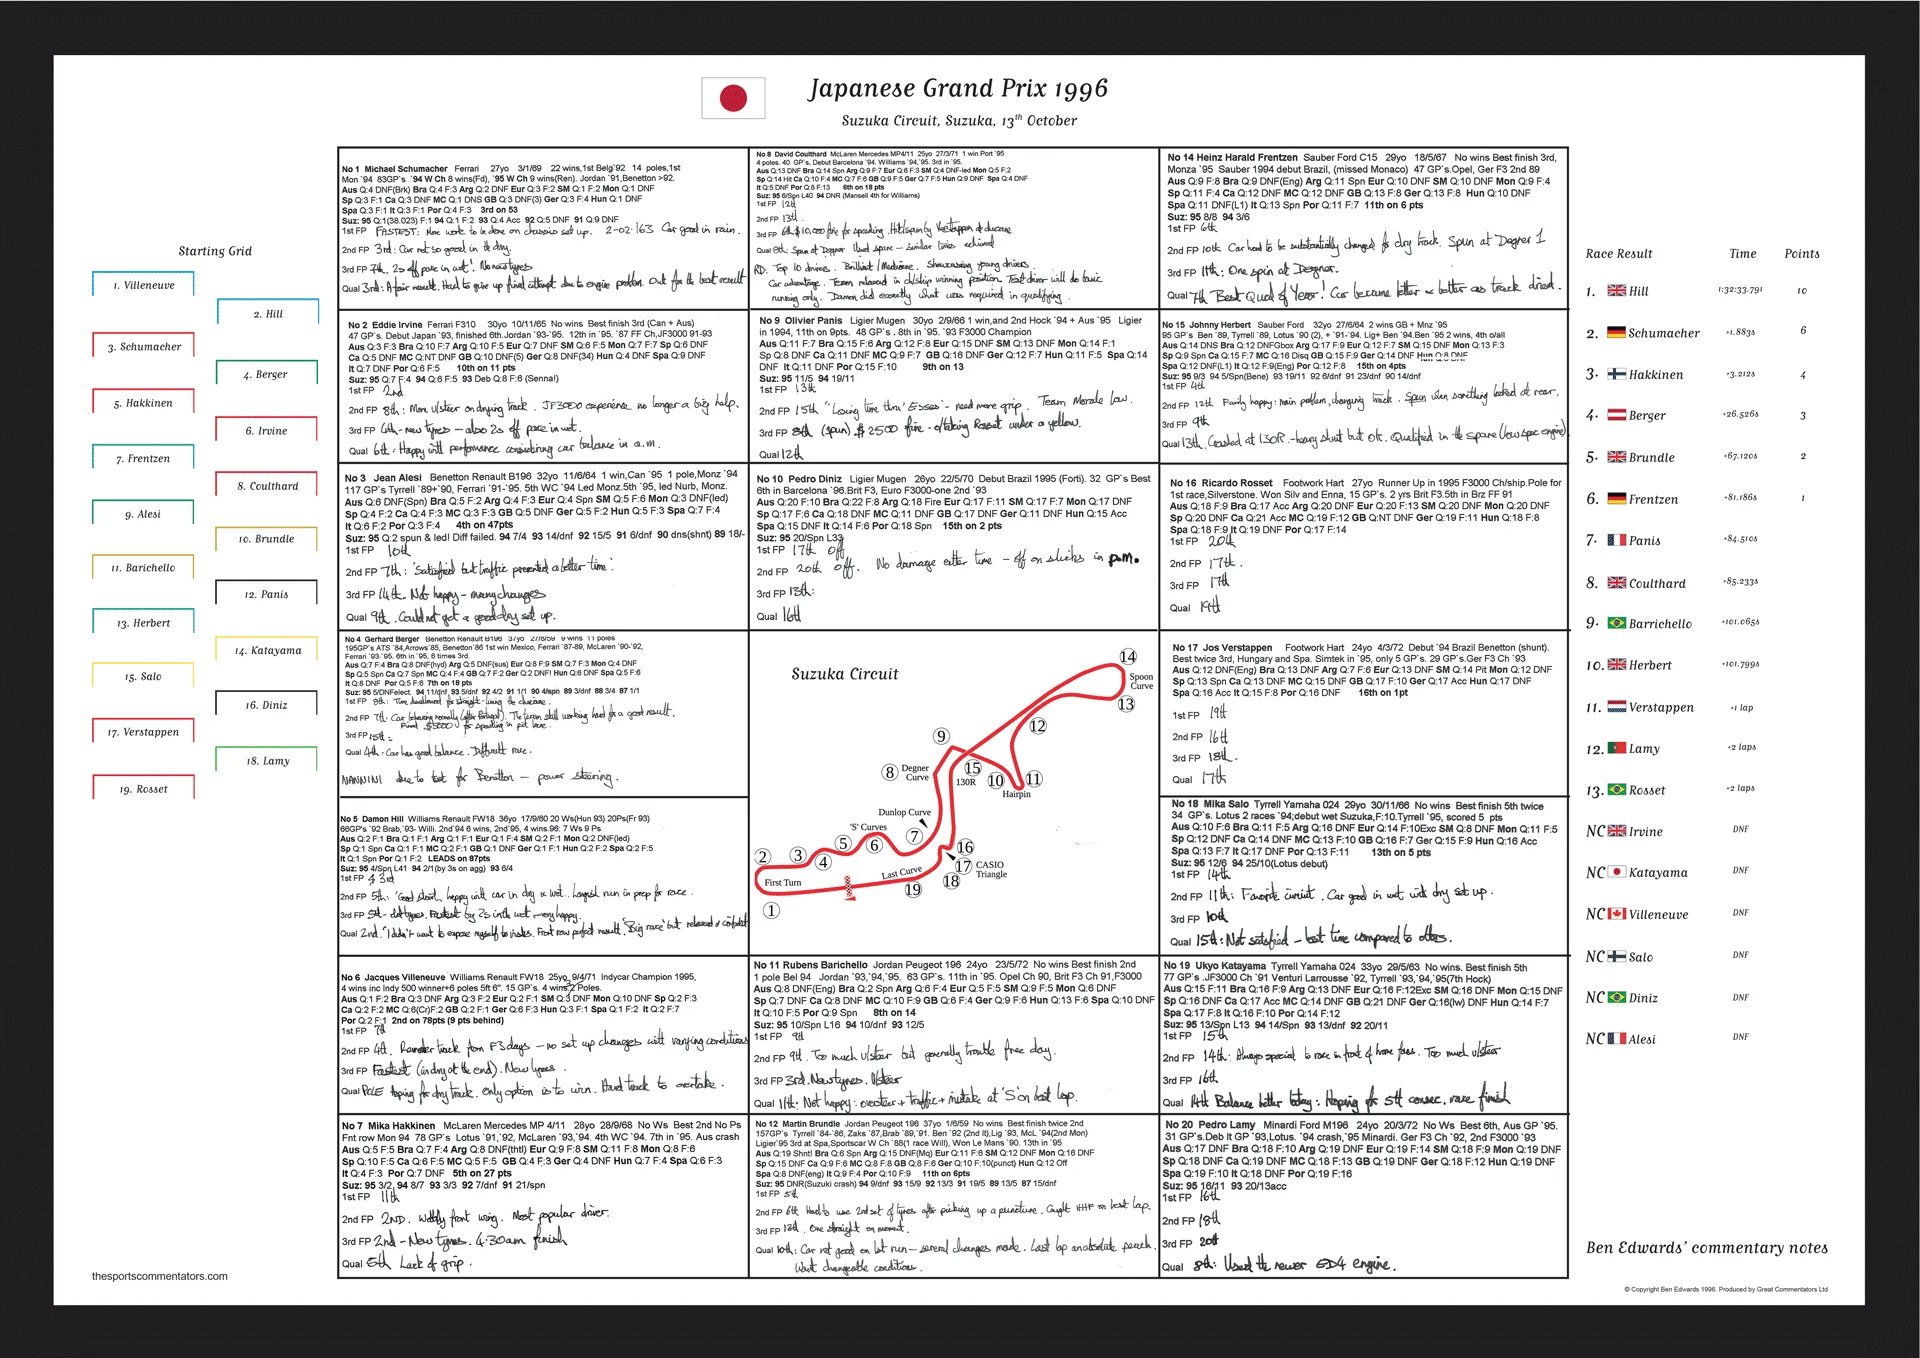 Japanese Grand Prix 1996
Suzuka Circuit, Suzuka, 13th October
Starting Grid
1. Villeneuve
2. Hill
3. Schumacher
4. Berger
5. Hakkinen
6. Irvine
7. Frentzen
8. Coulthard
9. Alesi
10. Brundle
11. Barichello
12. Panis
13. Herbert
14. Katayama
15. Salo
16. Diniz
17. Verstappen
18. Lamy
19. Rosset
thesportscommentators.com
No 1 Michael Schumacher Ferrari 27yo 3/1/69 22 wins,1st Belg`92 14 poles,1st
Mon `94 83GP's `94 W Ch 8 wins(Fd), `95 W Ch 9 wins(Ren). Jordan `91,Benetton >92.
Aus Q:4 DNF(Brk) Bra Q:4 F:3 Arg Q:2 DNF Eur Q:3 F:2 SM Q:1 F:2 Mon Q:1 DNF
Sp Q:3 F:1 Ca Q:3 DNF MC Q:1 DNS GB Q:3 DNF(3) Ger Q:3 F:4 Hun Q:1 DNF
Spa Q:3 F:1 It Q:3 F:1 Por Q:4 F:3 3rd on 53
Suz: 95 Q:1(38.023) F:1 94 Q:1 F:2 93 Q:4 Acc 92 Q:5 DNF 91 Q:9 DNF
1st FP FASTEST: More work to be done on chassis set up. 2-02.163 Car good in rain.
2nd FP 3rd: Car not so good in the dry.
3rd FP 7th. 2s off pace in wet! No new tyres
Qual 3rd: A fair result. Had to give up final attempt due to engine problem. Out for the best result
No 2 Eddie Irvine Ferrari F310 30yo 10/11/65 No wins Best finish 3rd (Can + Aus)
47 GP's. Debut Japan `93, finished 6th.Jordan `93-`95. 12th in `95. `87 FF Ch,JF3000 91-93
Aus Q:3 F:3 Bra Q:10 F:7 Arg Q:10 F:5 Eur Q:7 DNF SM Q:6 F:5 Mon Q:7 F:7 Sp Q:6 DNF
Ca Q:5 DNF MC Q:NT DNF GB Q:10 DNF(5) Ger Q:8 DNF(34) Hun Q:4 DNF Spa Q:9 DNF
It Q:7 DNF Por Q:6 F:5 10th on 11 pts
Suz: 95 Q:7 F:4 94 Q:6 F:5 93 Deb Q:8 F:6 (Senna!)
1st FP 2nd
2nd FP 8th: More u/steer on drying track. JF3000 experience no longer a big help.
3rd FP 6th - new tyres - also 2s off pace in wet.
Qual 6th. Happy with performance considering car balance in a.m.
No 3 Jean Alesi Benetton Renault B196 32yo 11/6/64 1 win,Can `95 1 pole,Monz `94
117 GP's Tyrrell `89+`90, Ferrari `91-`95. 5th WC `94 Led Monz.5th `95, led Nurb, Monz.
Aus Q:6 DNF(Spn) Bra Q:5 F:2 Arg Q:4 F:3 Eur Q:4 Spn SM Q:5 F:6 Mon Q:3 DNF(led)
Sp Q:4 F:2 Ca Q:4 F:3 MC Q:3 F:3 GB Q:5 DNF Ger Q:5 F:2 Hun Q:5 F:3 Spa Q:7 F:4
It Q:6 F:2 Por Q:3 F:4 4th on 47pts
Suz: 95 Q:2 spun & led! Diff failed. 94 7/4 93 14/dnf 92 15/5 91 6/dnf 90 dns(shnt) 89 18/-
1st FP 10th
2nd FP 7th: 'Satisfied but traffic prevented a better time.'
3rd FP 14th. Not happy - many changes
Qual 9th. Could not get a good dry set up.
No 4 Gerhard Berger Benetton Renault B196 37yo 27/8/59 9 wins 11 poles
195GP's ATS `84,Arrows`85, Benetton`86 1st win Mexico, Ferrari `87-89, McLaren `90-`92,
Ferrari `93-`95. 6th in `95, 6 times 3rd.
Aus Q:7 F:4 Bra Q:8 DNF(hyd) Arg Q:5 DNF(sus) Eur Q:8 F:9 SM Q:7 F:3 Mon Q:4 DNF
Sp Q:5 Spn Ca Q:7 Spn MC Q:4 F:4 GB Q:7 F:2 Ger Q:2 DNF! Hun Q:6 DNF Spa Q:5 F:6
It Q:8 DNF Por Q:5 F:6 7th on 18 pts
Suz: 95 5/DNFelect. 94 11/dnf 93 5/dnf 92 4/2 91 1/1 90 4/spn 89 3/dnf 88 3/4 87 1/1
1st FP 8th: Time disallowed for straight-lining the chicane.
2nd FP 7th. Car behaving normally (after Portugal). The team still working hard for a good result.
Fined $5000 for speeding in pit lane.
3rd FP 15th
Qual 4th. Car has good balance. Difficult race.
NANNINI due to test for Benetton - power steering.
No 5 Damon Hill Williams Renault FW18 36yo 17/9/60 20 Ws(Hun 93) 20Ps(Fr 93)
66GP's `92 Brab,`93- Willi. 2nd`94 6 wins, 2nd`95, 4 wins.96: 7 Ws 9 Ps
Aus Q:2 F:1 Bra Q:1 F:1 Arg Q:1 F:1 Eur Q:1 F:4 SM Q:2 F:1 Mon Q:2 DNF(led)
Sp Q:1 Spn Ca Q:1 F:1 MC Q:2 F:1 GB Q:1 DNF Ger Q:1 F:1 Hun Q:2 F:2 Spa Q:2 F:5
It Q:1 Spn Por Q:1 F:2 LEADS on 87pts
Suz: 95 4/Spn L41 94 2/1(by 3s on agg) 93 6/4
1st FP 3rd
2nd FP 5th: 'Good start, happy with car in dry & wet. Longish run in prep for race.
3rd FP 5th - old tyres. Fastest by 2s in the wet - very happy.
Qual 2nd. "I didn't want to expose myself to risks. Front row perfect result. 'Big race' but relaxed & confident
No 6 Jacques Villeneuve Williams Renault FW18 25yo 9/4/71 Indycar Champion 1995,
4 wins inc Indy 500 winner+6 poles 5ft 6". 15 GP's. 4 wins Poles.
Aus Q:1 F:2 Bra Q:3 DNF Arg Q:3 F:2 Eur Q:2 F:1 SM Q:3 DNF Mon Q:10 DNF Sp Q:2 F:3
Ca Q:2 F:2 MC Q:6(Cr)F:2 GB Q:2 F:1 Ger Q:6 F:3 Hun Q:3 F:1 Spa Q:1 F:2 It Q:2 F:7
Por Q:2 F:1 2nd on 78pts (9 pts behind)
1st FP 7th
2nd FP 4th. Remember track from F3 days - no set up changes with varying conditions
3rd FP Fastest (in dry at the end). New tyres.
Qual POLE Hoping for dry track. Only option is to win. Hard track to overtake.
No 7 Mika Hakkinen McLaren Mercedes MP 4/11 28yo 28/9/68 No Ws Best 2nd No Ps
Fnt row Mon 94 78 GP's Lotus `91,`92, McLaren `93,`94. 4th WC `94. 7th in `95. Aus crash
Aus Q:5 F:5 Bra Q:7 F:4 Arg Q:8 DNF(thtl) Eur Q:9 F:8 SM Q:11 F:8 Mon Q:8 F:6
Sp Q:10 F:5 Ca Q:6 F:5 MC Q:5 F:5 GB Q:4 F:3 Ger Q:4 DNF Hun Q:7 F:4 Spa Q:6 F:3
It Q:4 F:3 Por Q:7 DNF 5th on 27 pts
Suz: 95 3/2, 94 8/7 93 3/3 92 7/dnf 91 21/spn
1st FP 11th
2nd FP 2ND. Wobbly front wing. Most popular driver.
3rd FP 2nd - New tyres. 4:30am finish
Qual 5th Lack of grip.
No 8 David Coulthard McLaren Mercedes MP4/11 25yo 27/3/71 1 win Port `95
4 poles. 40 GP's. Debut Barcelona `94. Williams `94,`95. 3rd in `95.
Aus Q:13 DNF Bra Q:14 Spn Arg Q:9 F:7 Eur Q:6 F:3 SM Q:4 DNF-led Mon Q:5 F:2
Sp Q:14 Hit Ca Q:10 F:4 MC Q:7 F:6 GB Q:9 F:5 Ger Q:7 F:5 Hun Q:9 DNF Spa Q:4 DNF
It Q:5 DNF Por Q:8 F:13 6th on 18 pts
Suz: 95 6/Spn L40 94 DNR (Mansell 4th for Williams)
1st FP 12th
2nd FP 13th.
3rd FP 6th $10,000 fine for speeding. Hit/spun by Verstappen at chicane
Qual 8th: Spun at Degner. Used spare - similar times achieved
RD. Top 10 drivers. Brilliant/Mediocre. Showcasing young drivers.
Car advantage. Team relaxed in ch/ship winning position. Test driver will do basic
running only. Damon did exactly what was required in qualifying.
No 9 Olivier Panis Ligier Mugen 30yo 2/9/66 1 win,and 2nd Hock `94 + Aus `95 Ligier
in 1994, 11th on 9pts. 48 GP's . 8th in `95. `93 F3000 Champion
Aus Q:11 F:7 Bra Q:15 F:6 Arg Q:12 F:8 Eur Q:15 DNF SM Q:13 DNF Mon Q:14 F:1
Sp Q:8 DNF Ca Q:11 DNF MC Q:9 F:7 GB Q:16 DNF Ger Q:12 F:7 Hun Q:11 F:5 Spa Q:14
DNF It Q:11 DNF Por Q:15 F:10 9th on 13
Suz: 95 11/5 94 19/11
1st FP 13th
2nd FP 15th "Losing time thru' Esses' - need more grip. Team Morale low.
3rd FP 8th (spun) $2500 fine - o/taking Rosset under a yellow.
Qual 12th
No 10 Pedro Diniz Ligier Mugen 26yo 22/5/70 Debut Brazil 1995 (Forti). 32 GP's Best
6th in Barcelona `96.Brit F3, Euro F3000-one 2nd `93
Aus Q:20 F:10 Bra Q:22 F:8 Arg Q:18 Fire Eur Q:17 F:11 SM Q:17 F:7 Mon Q:17 DNF
Sp Q:17 F:6 Ca Q:18 DNF MC Q:11 DNF GB Q:17 DNF Ger Q:11 DNF Hun Q:15 Acc
Spa Q:15 DNF It Q:14 F:6 Por Q:18 Spn 15th on 2 pts
Suz: 95 20/Spn L33
1st FP 17th Off
2nd FP 20th Off. No damage either time - off on slicks in p.m.
3rd FP 13th:
Qual 16th
Suzuka Circuit
14
Spoon Curve
13
12
9
8 Degner Curve
15
130R
10
11
Hairpin
Dunlop Curve
'S' Curves
7
5
6
2
3
4
16
17
18
CASIO Triangle
First Turn
Last Curve
19
1
No 11 Rubens Barichello Jordan Peugeot 196 24yo 23/5/72 No wins Best finish 2nd
1 pole Bel 94 Jordan `93,`94,`95. 63 GP's. 11th in `95. Opel Ch 90, Brit F3 Ch 91,F3000
Aus Q:8 DNF(Eng) Bra Q:2 Spn Arg Q:6 F:4 Eur Q:5 F:5 SM Q:9 F:5 Mon Q:6 DNF
Sp Q:7 DNF Ca Q:8 DNF MC Q:10 F:9 GB Q:6 F:4 Ger Q:9 F:6 Hun Q:13 F:6 Spa Q:10 DNF
It Q:10 F:5 Por Q:9 Spn 8th on 14
Suz: 95 10/Spn L16 94 10/dnf 93 12/5
1st FP 9th
2nd FP 9th. Too much u/steer but generally trouble free day.
3rd FP 3rd. New tyres. U/steer
Qual 11th: Not happy: oversteer + traffic + mistake at 'S' on best lap.
No 12 Martin Brundle Jordan Peugeot 196 37yo 1/6/59 No wins Best finish twice 2nd
157GP's Tyrrell `84-`86, Zaks `87,Brab `89,`91. Ben `92 (2nd It),Lig `93, McL `94(2nd Mon)
Ligier`95 3rd at Spa,Sportscar W Ch `88(1 race Will), Won Le Mans `90. 13th in `95
Aus Q:19 Shnt! Bra Q:6 Spn Arg Q:15 DNF(Mq) Eur Q:11 F:6 SM Q:12 DNF Mon Q:16 DNF
Sp Q:15 DNF Ca Q:9 F:6 MC Q:8 F:8 GB Q:8 F:6 Ger Q:10 F:10(punct) Hun Q:12 Off
Spa Q:8 DNF(eng) It Q:9 F:4 Por Q:10 F:9 11th on 6pts
Suz: 95 DNR(Suzuki crash) 94 9/dnf 93 15/9 92 13/3 91 19/5 89 13/5 87 15/dnf
1st FP 5th
2nd FP 6th Had to use 2nd set of tyres after picking up a puncture. Caught HHF on best lap.
3rd FP 12th. One straight on moment.
Qual 10th: Car not good on 1st run - several changes made. Last lap an absolute peach.
Want changeable conditions.
No 14 Heinz Harald Frentzen Sauber Ford C15 29yo 18/5/67 No wins Best finish 3rd,
Monza `95 Sauber 1994 debut Brazil, (missed Monaco) 47 GP's.Opel, Ger F3 2nd 89
Aus Q:9 F:8 Bra Q:9 DNF(Eng) Arg Q:11 Spn Eur Q:10 DNF SM Q:10 DNF Mon Q:9 F:4
Sp Q:11 F:4 Ca Q:12 DNF MC Q:12 DNF GB Q:13 F:8 Ger Q:13 F:8 Hun Q:10 DNF
Spa Q:11 DNF(L1) It Q:13 Spn Por Q:11 F:7 11th on 6 pts
Suz: 95 8/8 94 3/6
1st FP 6th
2nd FP 10th Car had to be substantially changed for dry track. Spun at Degner 1
3rd FP 11th: One spin at Degner.
Qual 7th Best Qual of Year! Car became better & better as track dried.
No 15 Johnny Herbert Sauber Ford 32yo 27/6/64 2 wins GB + Mnz `95
95 GP's Ben `89, Tyrrell `89, Lotus `90 (2), + `91-`94. Lig+ Ben `94.Ben `95 2 wins, 4th o/all
Aus Q:14 DNS Bra Q:12 DNFGbox Arg Q:17 F:9 Eur Q:12 F:7 SM Q:15 DNF Mon Q:13 F:3
Sp Q:9 Spn Ca Q:15 F:7 MC Q:16 Disq GB Q:15 F:9 Ger Q:14 DNF Hun Q:8 DNF
Spa Q:12 DNF(L1) It Q:12 F:9(Eng) Por Q:12 F:8 15th on 4pts
Suz: 95 9/3 94 5/Spn(Bene) 93 19/11 92 6/dnf 91 23/dnf 90 14/dnf
1st FP 4th
2nd FP 12th Fairly happy: main problem, changing track. Spun when something locked at rear.
3rd FP 9th
Qual 13th. Crashed at 130R - heavy shunt but OK. Qualified in the spare (low spec engine)
No 16 Ricardo Rosset Footwork Hart 27yo Runner Up in 1995 F3000 Ch/ship.Pole for
1st race,Silverstone. Won Silv and Enna, 15 GP's. 2 yrs Brit F3.5th in Brz FF 91
Aus Q:18 F:9 Bra Q:17 Acc Arg Q:20 DNF Eur Q:20 F:13 SM Q:20 DNF Mon Q:20 DNF
Sp Q:20 DNF Ca Q:21 Acc MC Q:19 F:12 GB Q:NT DNF Ger Q:19 F:11 Hun Q:18 F:8
Spa Q:18 F:9 It Q:19 DNF Por Q:17 F:14
1st FP 20th
2nd FP 17th.
3rd FP 17th
Qual 19th
No 17 Jos Verstappen Footwork Hart 24yo 4/3/72 Debut `94 Brazil Benetton (shunt).
Best twice 3rd, Hungary and Spa. Simtek in `95, only 5 GP's. 29 GP's.Ger F3 Ch `93
Aus Q:12 DNF(Eng) Bra Q:13 DNF Arg Q:7 F:6 Eur Q:13 DNF SM Q:14 Pit Mon Q:12 DNF
Sp Q:13 Spn Ca Q:13 DNF MC Q:15 DNF GB Q:17 F:10 Ger Q:17 Acc Hun Q:17 DNF
Spa Q:16 Acc It Q:15 F:8 Por Q:16 DNF 16th on 1pt
1st FP 19th
2nd FP 16th
3rd FP 18th.
Qual 17th
No 18 Mika Salo Tyrrell Yamaha 024 29yo 30/11/66 No wins Best finish 5th twice
34 GP's. Lotus 2 races `94;debut wet Suzuka,F:10.Tyrrell `95, scored 5 pts
Aus Q:10 F:6 Bra Q:11 F:5 Arg Q:16 DNF Eur Q:14 F:10Exc SM Q:8 DNF Mon Q:11 F:5
Sp Q:12 DNF Ca Q:14 DNF MC Q:13 F:10 GB Q:16 F:7 Ger Q:15 F:9 Hun Q:16 Acc
Spa Q:13 F:7 It Q:17 DNF Por Q:13 F:11 13th on 5 pts
Suz: 95 12/6 94 25/10(Lotus debut)
1st FP 14th
2nd FP 11th: Favorite circuit. Car good in wet with dry set up.
3rd FP 10th
Qual 15th: Not satisfied - best time compared to others.
No 19 Ukyo Katayama Tyrrell Yamaha 024 33yo 29/5/63 No wins. Best finish 5th
77 GP's .JF3000 Ch `91 Venturi Larrousse `92, Tyrrell `93,`94,`95(7th Hock)
Aus Q:15 F:11 Bra Q:16 F:9 Arg Q:13 DNF Eur Q:16 F:12Exc SM Q:16 DNF Mon Q:15 DNF
Sp Q:16 DNF Ca Q:17 Acc MC Q:14 DNF GB Q:21 DNF Ger Q:16(lw) DNF Hun Q:14 F:7
Spa Q:17 F:8 It Q:16 F:10 Por Q:14 F:12
Suz: 95 13/Spn L13 94 14/Spn 93 13/dnf 92 20/11
1st FP 15th
2nd FP 14th: Always special to race in front of home fans. Too much u/steer
3rd FP 16th
Qual 14th Balance better today: Hoping for 5th consec. race finish
No 20 Pedro Lamy Minardi Ford M196 24yo 20/3/72 No Ws Best 6th, Aus GP `95.
31 GP's.Deb It GP `93,Lotus. `94 crash,`95 Minardi. Ger F3 Ch `92, 2nd F3000 `93
Aus Q:17 DNF Bra Q:18 F:10 Arg Q:19 DNF Eur Q:19 F:14 SM Q:18 F:9 Mon Q:19 DNF
Sp Q:18 DNF Ca Q:19 DNF MC Q:18 F:13 GB Q:19 DNF Ger Q:18 F:12 Hun Q:19 DNF
Spa Q:19 F:10 It Q:18 DNF Por Q:19 F:16
Suz: 95 16/11 93 20/13acc
1st FP 16th
2nd FP 18th
3rd FP 20th
Qual 8th: Used the newer ED4 engine.
Race Result Time Points
1. Hill 1:32:33.791 10
2. Schumacher +1.883s 6
3. Hakkinen +3.212s 4
4. Berger +26.526s 3
5. Brundle +67.120s 2
6. Frentzen +81.186s 1
7. Panis +84.510s
8. Coulthard +85.233s
9. Barrichello +101.065s
10. Herbert +101.799s
11. Verstappen +1 lap
12. Lamy +2 laps
13. Rosset +2 laps
NC Irvine DNF
NC Katayama DNF
NC Villeneuve DNF
NC Salo DNF
NC Diniz DNF
NC Alesi DNF
Ben Edwards' commentary notes
© Copyright Ben Edwards 1996. Produced by Great Commentators Ltd